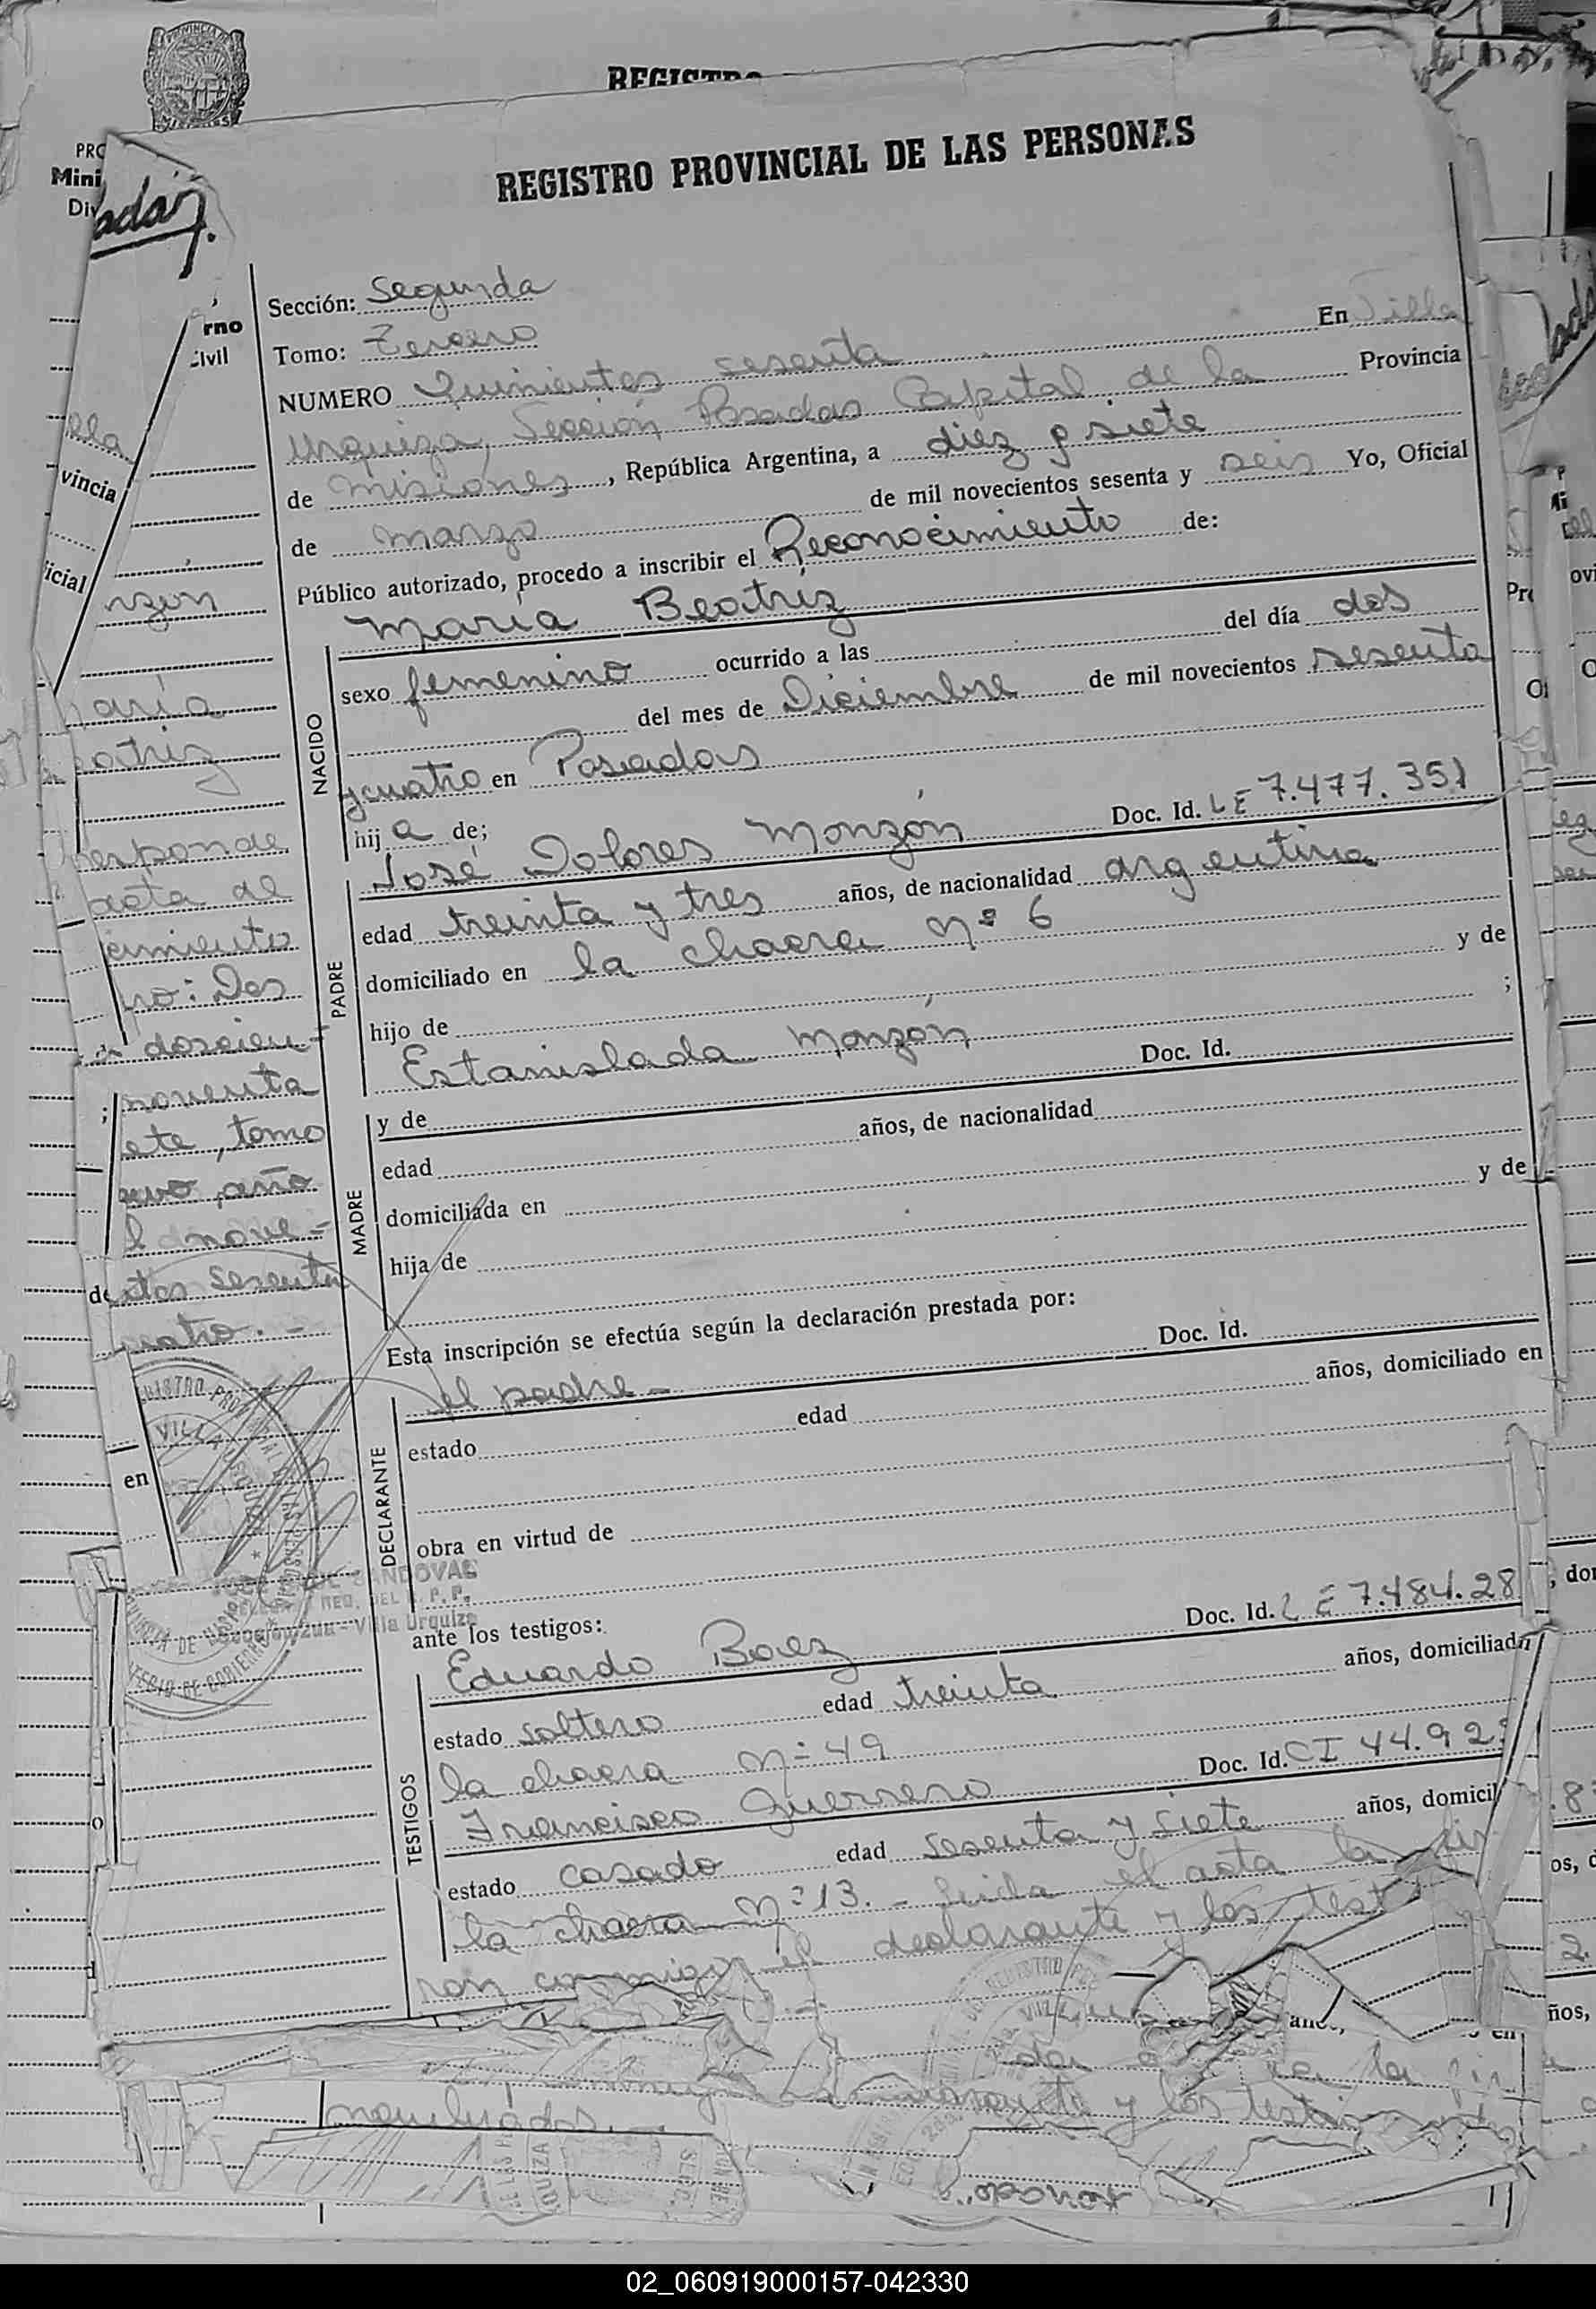 REGISTRO PROVINCIAL DE LAS PERSONAS
Sección: Segunda
Tomo: Tercero
NUMERO Quinientos sesenta En Villa
Urquiza, Sección Posadas Capital de la Provincia
de Misiones, República Argentina, a diez y siete
de marzo de mil novecientos sesenta y seis Yo, Oficial
Público autorizado, procedo a inscribir el Reconocimiento de:
María Beatriz
NACIDO
sexo femenino ocurrido a las del día dos
del mes de Diciembre de mil novecientos sesenta
y cuatro en Posadas
hij a de;
José Dolores Monzón Doc. Id. LE 7.477.351
PADRE
edad treinta y tres años, de nacionalidad argentina
domiciliado en la chacra nº 6
hijo de y de
Estanislada Monzón ;
y de Doc. Id.
MADRE
edad años, de nacionalidad
domiciliada en
hija de y de
Esta inscripción se efectúa según la declaración prestada por:
el padre - Doc. Id.
DECLARANTE
estado edad años, domiciliado en
obra en virtud de
ante los testigos:
Eduardo Baez Doc. Id. LE 7.484.28
TESTIGOS
estado soltero edad treinta años, domiciliado
la chacra nº 49
Francisco Guerrero Doc. Id. CI 44.92
estado casado edad sesenta y siete años, domicil
la chacra nº 13. - Leída el acta la fir
ron conmigo el declarante y los test
PRO
Mini
Div
rno
ivil
vincia
icial
nzon
aría
eatriz
responde
acta de
cimiento
ro: Dos
doscien-
noventa
ete, tomo
uevo, año
l nove-
ntos sesenta
cuatro. -
en
VILLA URQUIZA
SANDOVAL
Villa Urquiza
y los testi
02_060919000157-042330